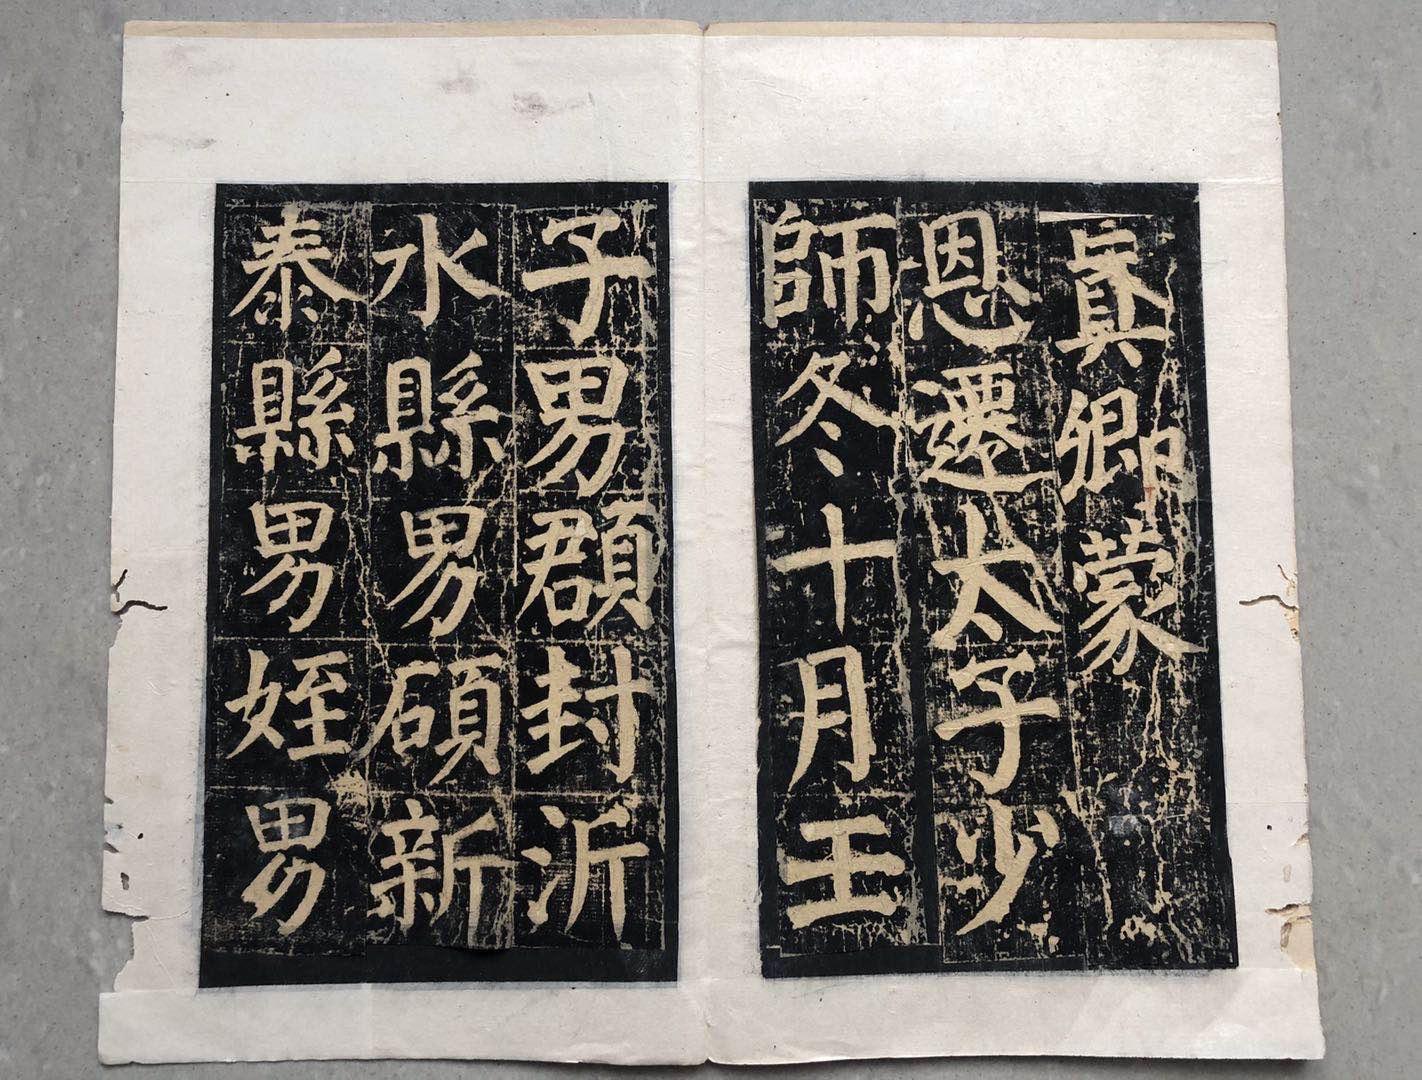 眞卿蒙
恩遷太子少
師冬十月壬
子男頵封沂
水縣男碩新
泰縣男姪男